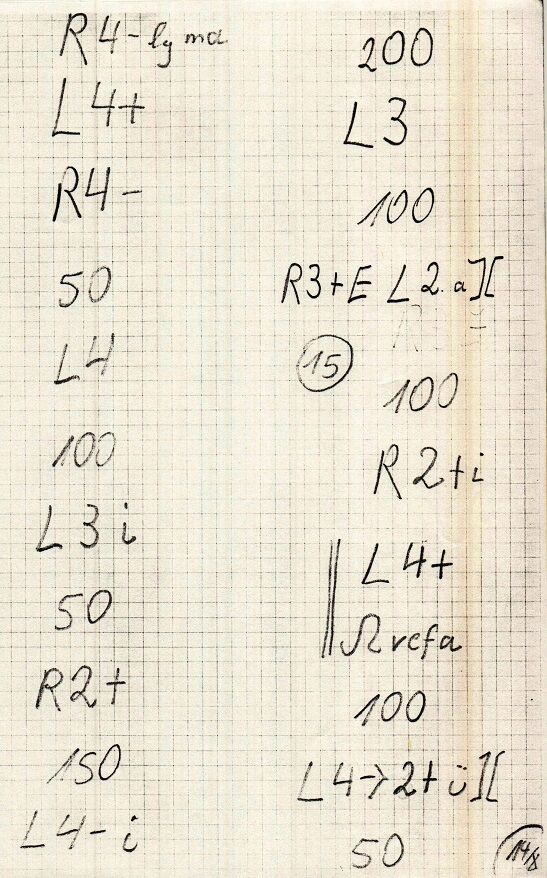 R4-lg ma
L4+
R4-
50
L4
100
L3 i
50
R2+
150
L4-i
200
L3
100
R3+E L2.a][
15
100
R2+i
L4+
Ω refa
100
L4→2+ü][
50